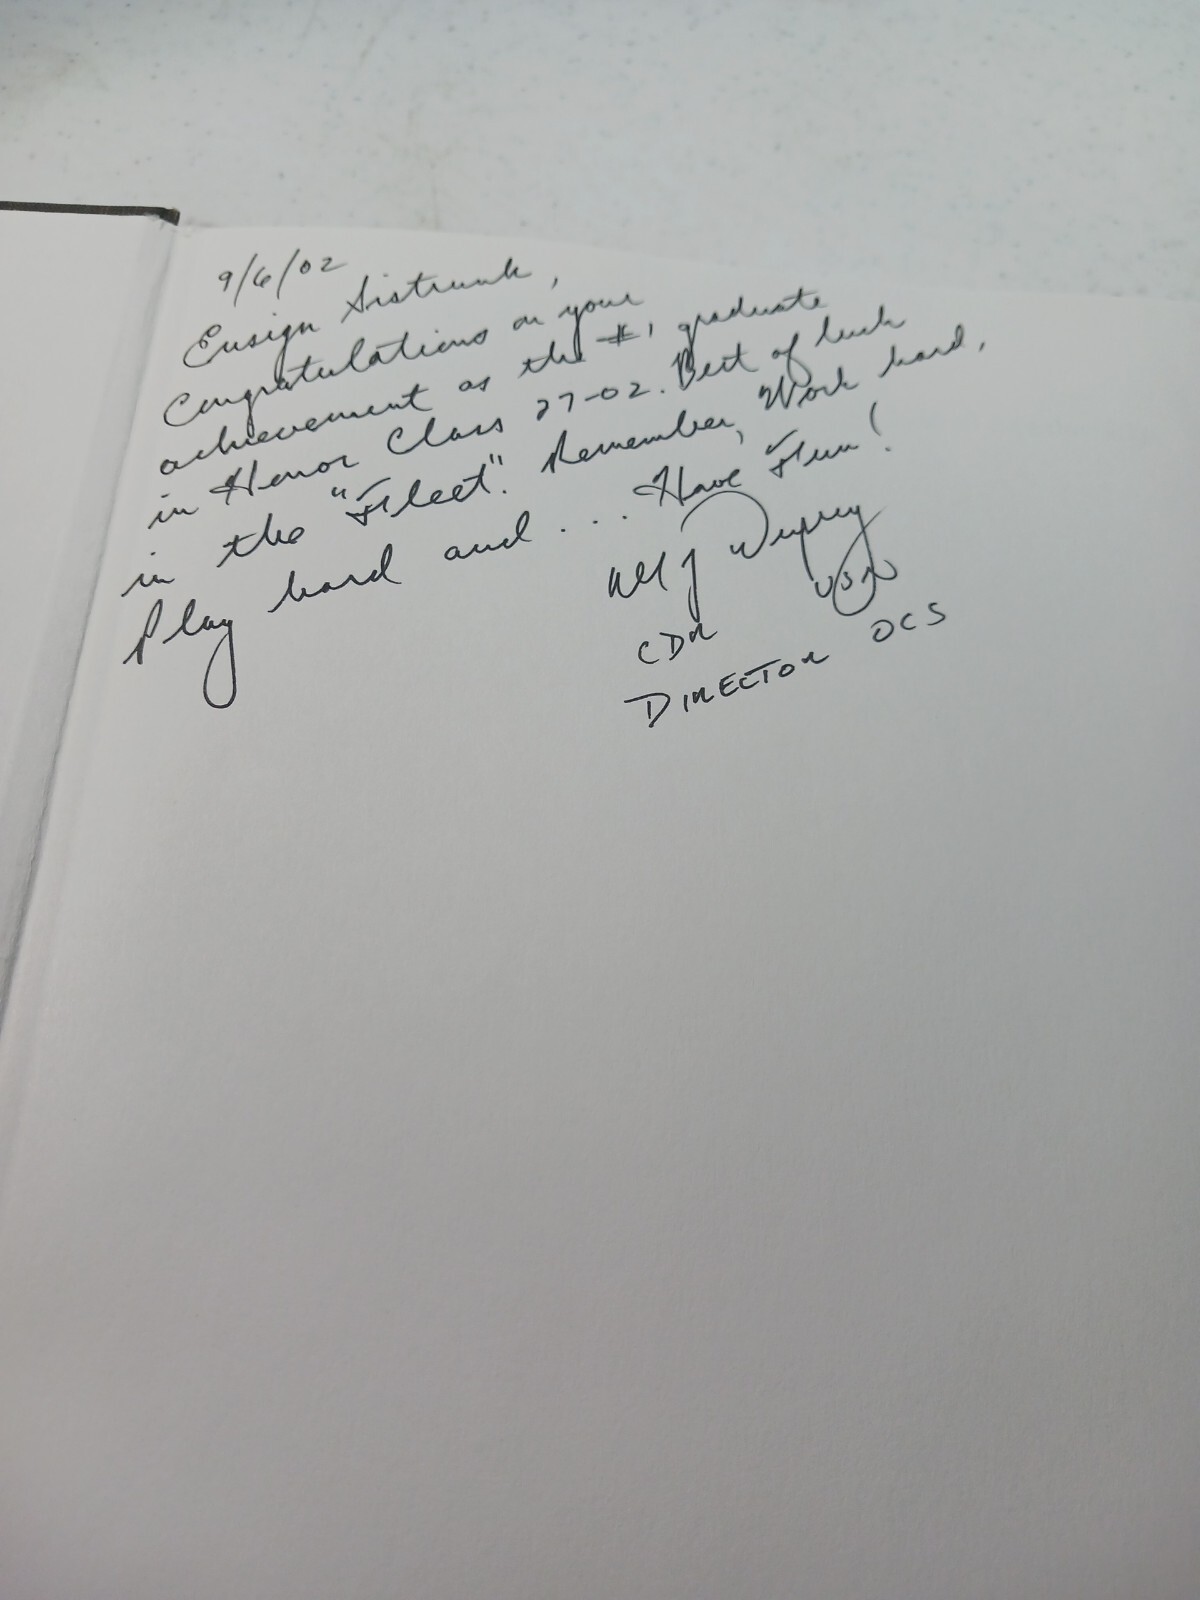 9/6/02
Ensign Sistrunk,
Congratulations on your
achievement as the #1 graduate
in Honor Class 27-02. Best of luck
in the "Fleet". Remember, Work hard,
Play hard and... Have Fun!
CDR USN
DIRECTOR OCS